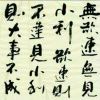 無欲速無見
小利欲速則
不達見小利
則大事不成